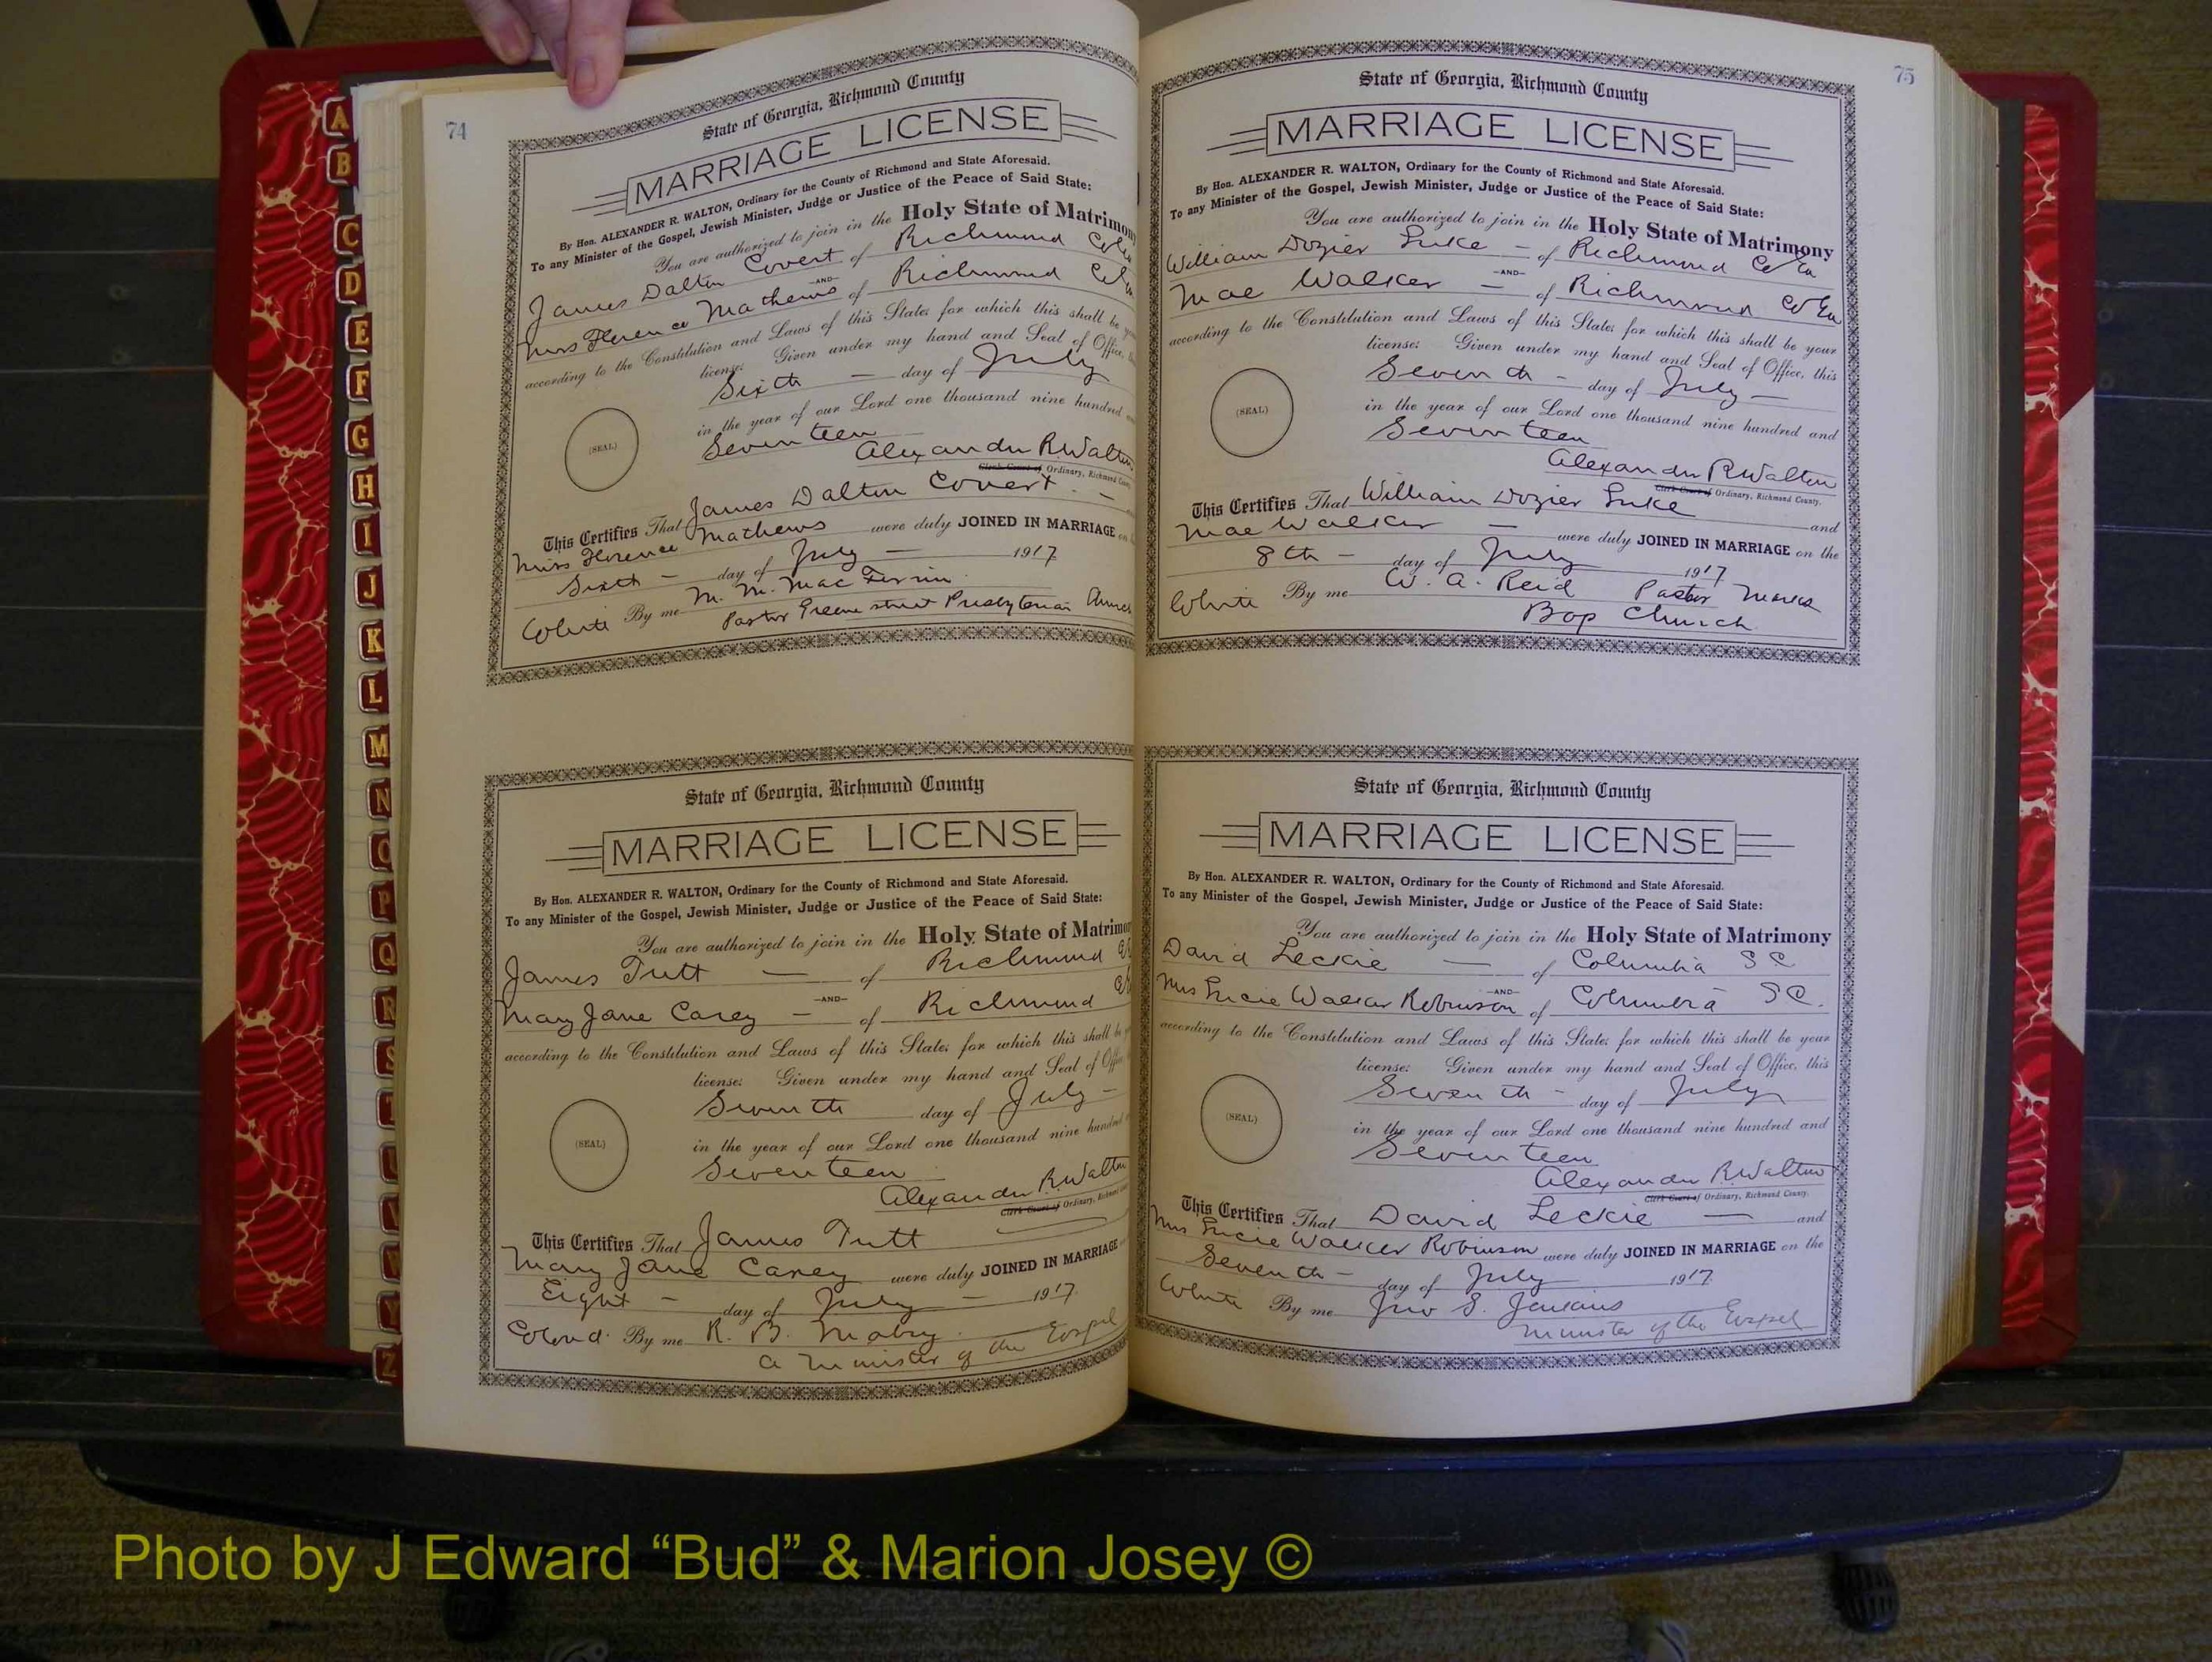 A
B
C
D
E
F
G
H
I
J
K
L
M
N
O
P
Q
R
S
Y
Z
74
State of Georgia, Richmond County
MARRIAGE LICENSE
By Hon. ALEXANDER R. WALTON, Ordinary for the County of Richmond and State Aforesaid.
To any Minister of the Gospel, Jewish Minister, Judge or Justice of the Peace of Said State:
You are authorized to join in the Holy State of Matrimony
James Dalton Covert of Richmond Co
—AND—
Miss Florence Mathews of Richmond Co
according to the Constitution and Laws of this State; for which this shall be
license: Given under my hand and Seal of Office,
Sixth — day of July
(SEAL)
in the year of our Lord one thousand nine hundred
Seventeen
Alexander R Walton
Clerk Court of Ordinary, Richmond County
This Certifies That James Dalton Covert —
Miss Florence Mathews were duly JOINED IN MARRIAGE on
Sixth — day of July — 1917
White By me M. M. Mac Ferrin
Pastor Greene street Presbyterian
State of Georgia, Richmond County
MARRIAGE LICENSE
By Hon. ALEXANDER R. WALTON, Ordinary for the County of Richmond and State Aforesaid.
To any Minister of the Gospel, Jewish Minister, Judge or Justice of the Peace of Said State:
You are authorized to join in the Holy State of Matrimo
James Tutt — of Richmond
—AND—
Mary Jane Carey — of Richmond
according to the Constitution and Laws of this State; for which this shall be
license: Given under my hand and Seal of
Seventh day of July —
(SEAL)
in the year of our Lord one thousand nine hundred
Seventeen
Alexander R. Walton
Clerk Court of Ordinary, Richmond
This Certifies That James Tutt
Mary Jane Carey were duly JOINED IN MARRIAGE
Eight — day of July — 1917
Colored. By me R. B. Mabry
a minister of the Gospel
75
State of Georgia, Richmond County
MARRIAGE LICENSE
By Hon. ALEXANDER R. WALTON, Ordinary for the County of Richmond and State Aforesaid.
To any Minister of the Gospel, Jewish Minister, Judge or Justice of the Peace of Said State:
You are authorized to join in the Holy State of Matrimony
William Dozier Luke — of Richmond Co Ga
—AND—
Mae Walker — of Richmond Co Ga
according to the Constitution and Laws of this State; for which this shall be your
license: Given under my hand and Seal of Office, this
Seventh — day of July —
(SEAL)
in the year of our Lord one thousand nine hundred and
Seventeen
Alexander R Walton
Clerk Court of Ordinary, Richmond County.
This Certifies That William Dozier Luke and
Mae Walker — were duly JOINED IN MARRIAGE on the
8th — day of July 1917
White By me W. A. Reid Pastor
Bap Church
State of Georgia, Richmond County
MARRIAGE LICENSE
By Hon. ALEXANDER R. WALTON, Ordinary for the County of Richmond and State Aforesaid.
To any Minister of the Gospel, Jewish Minister, Judge or Justice of the Peace of Said State:
You are authorized to join in the Holy State of Matrimony
David Leckie — of Columbia S C
—AND—
Mrs Lucie Walker Robinson of Columbia S C.
according to the Constitution and Laws of this State; for which this shall be your
license: Given under my hand and Seal of Office, this
Seventh — day of July
(SEAL)
in the year of our Lord one thousand nine hundred and
Seventeen
Alexander R. Walton
Clerk Court of Ordinary, Richmond County.
This Certifies That David Leckie — and
Mrs Lucie Walker Robinson were duly JOINED IN MARRIAGE on the
Seventh — day of July 1917
White By me Jno S. Jenkins
Minister of the Gospel
Photo by J Edward “Bud” & Marion Josey ©